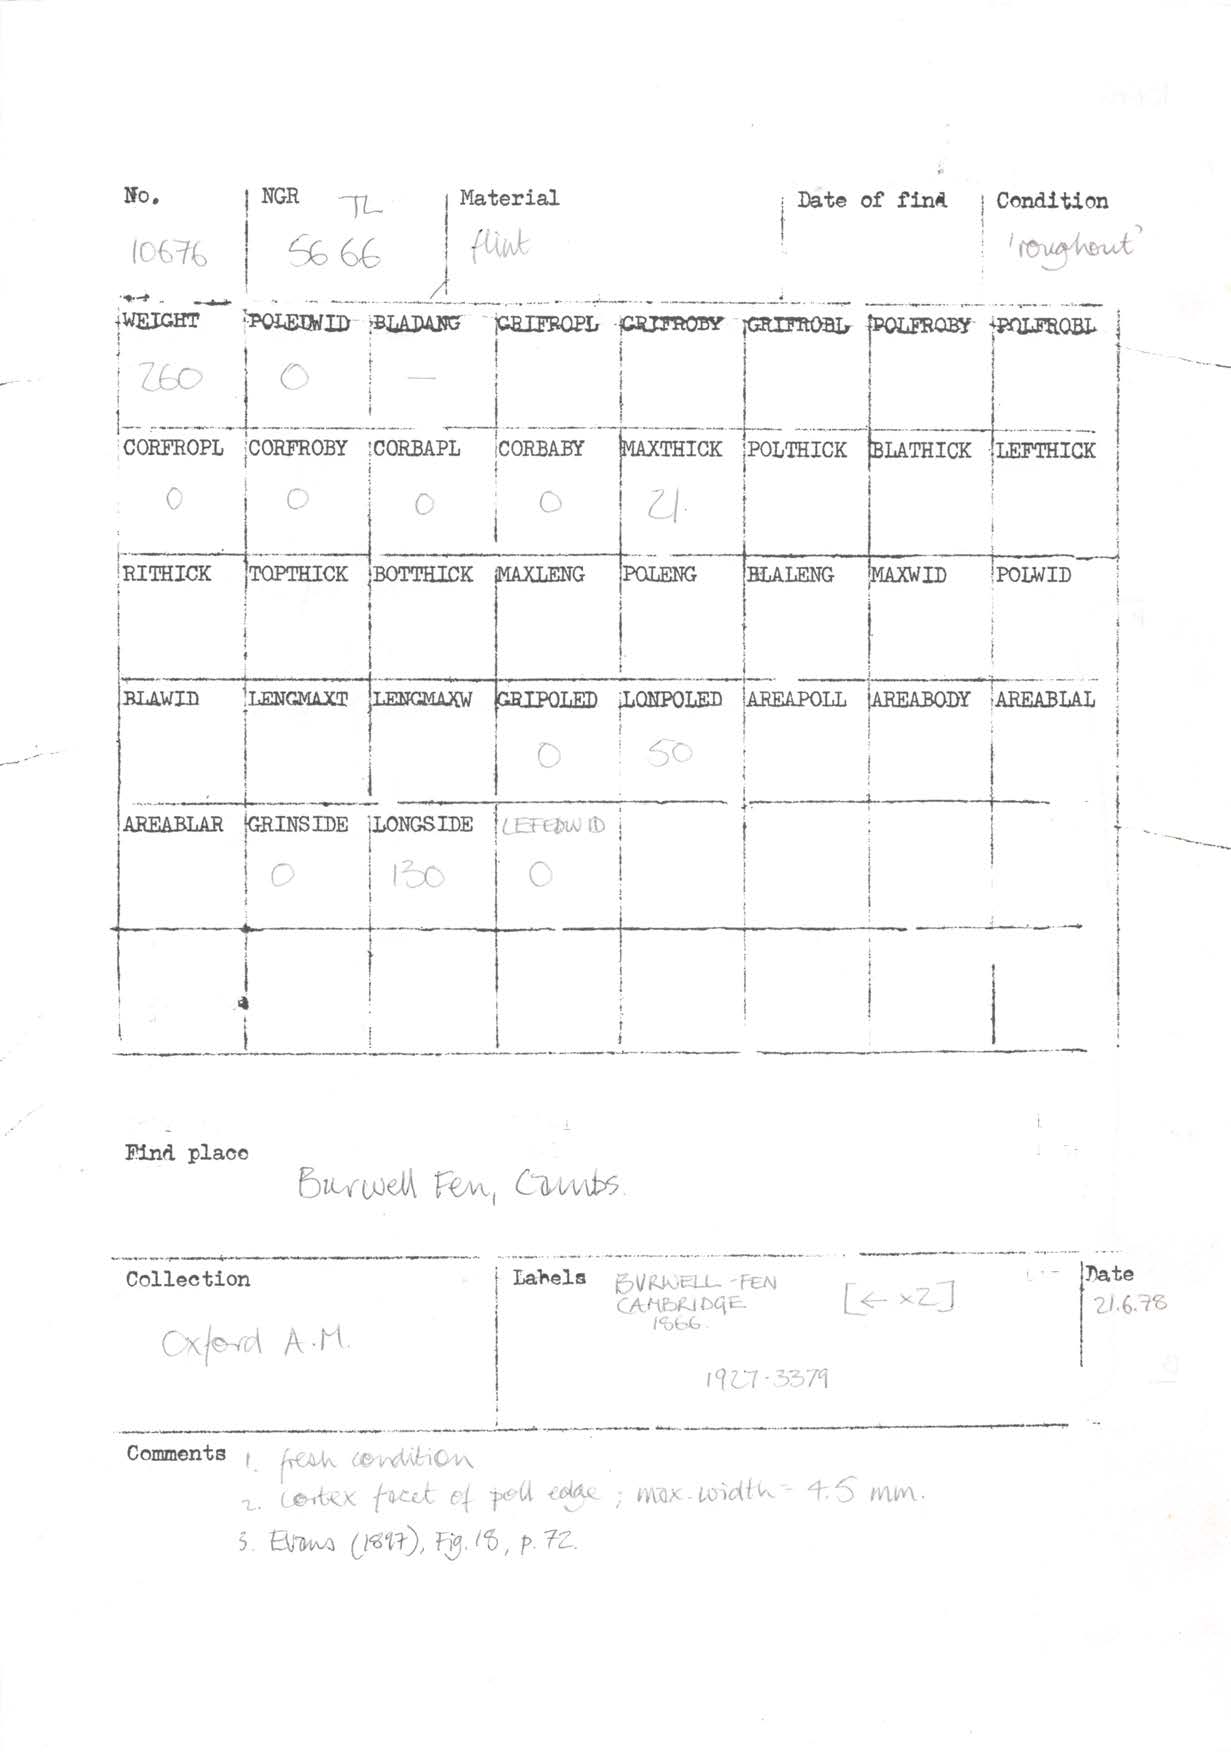 No. NGR TL Material Date of find Condition
10676 56 66 flint 'roughout'
WEIGHT POLEDWID BLADANG GRIFROPL GRIFROBY GRIFROBL POLFROBY POLFROBL
260 0 —
CORFROPL CORFROBY CORBAPL CORBABY MAXTHICK POLTHICK BLATHICK LEFTHICK
0 0 0 0 21.
RITHICK TOPTHICK BOTTHICK MAXLENG POLENG BLALENG MAXWID POLWID
BLAWID LENGMAXT LENGMAXW GRIPOLED LONPOLED AREAPOLL AREABODY AREABLAL
0 50
AREABLAR GRINSIDE LONGSIDE LEFEDWID
0 130 0
Find place
Burwell Fen, Cambs.
Collection Labels BURWELL-FEN Date
CAMBRIDGE [← x2] 21.6.78
1866.
Oxford A.M.
1927.3379
Comments 1. fresh condition
2. cortex facet of poll edge ; max. width = 4.5 mm.
3. Evans (1897), Fig. 18, p. 72.